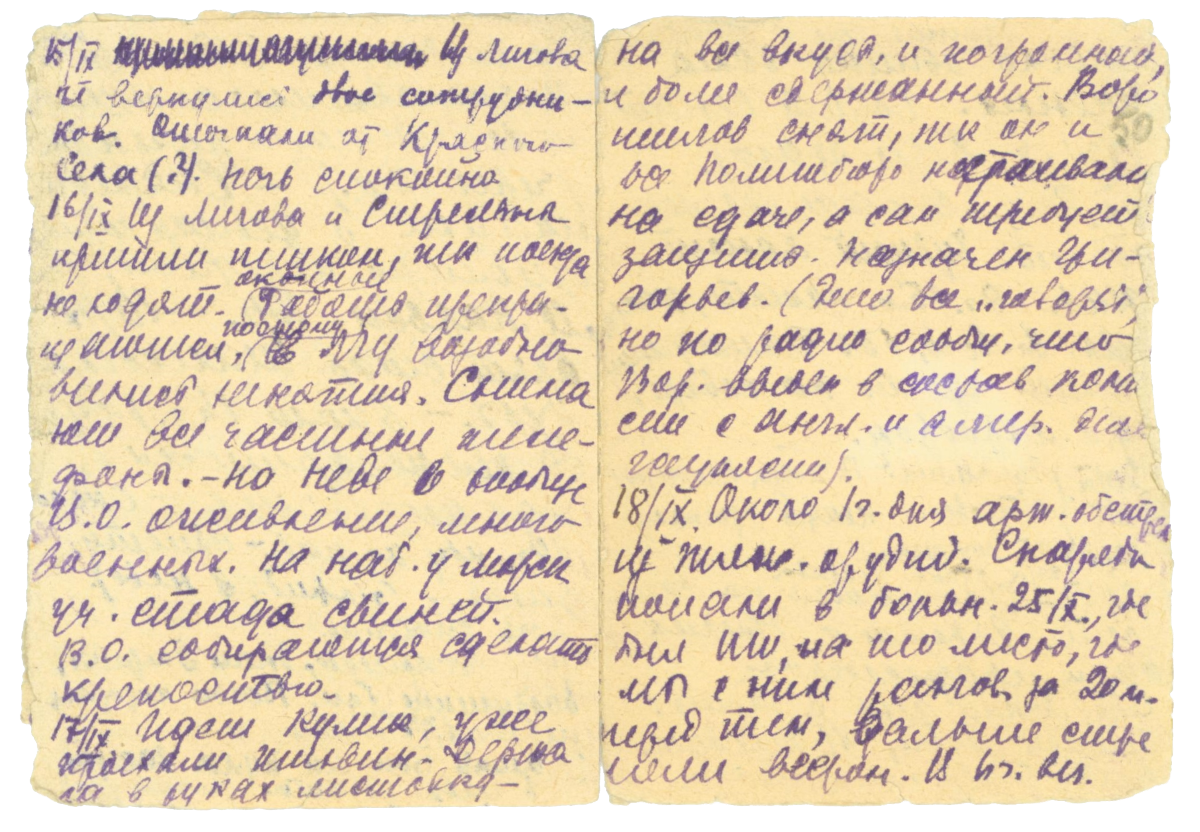 15/IX Из Лигова
не вернулись двое сотрудни-
ков. Отогнали от Красного
Села (?). Ночь спокойно
16/IX Из Лигова и Стрельны
пришли пешком, т.к. поезда
не ходят. (Работа прекра-
окопные
щаются, в ЛГУ возобно
поэтому
вились занятия. Снима
ют все частные теле-
фоны. – На Неве и вообще
В.О. оживление, много
военных. На наб. у Морск
уч. стада свиней.
В.О. собираются сделать
крепостью.
17/IX Идет Кулик, уже
проехали Держа
ла в руках листовка –
на все вкусы, и погромный,
и более сдержанный. Воро
шилов снят, т.к. он и
все Политбюро настаивали
на сдаче, а сам требует
защиты. Назначен Гри-
горьев. (Это все „говорят",
но по радио сообщ., что
Вор. введен в состав коми
сии с англ. и амер. деле
гациями).
18/IX. Около 1 ч. дня арт. обстрел
из тяжел. орудий. Снаряды
попали в больн. 25/X., где
был на то место, где
мы с ним разгов. за 20 м.
перед тем, дальше стре
ляли веером. В 6 ч. веч.
50